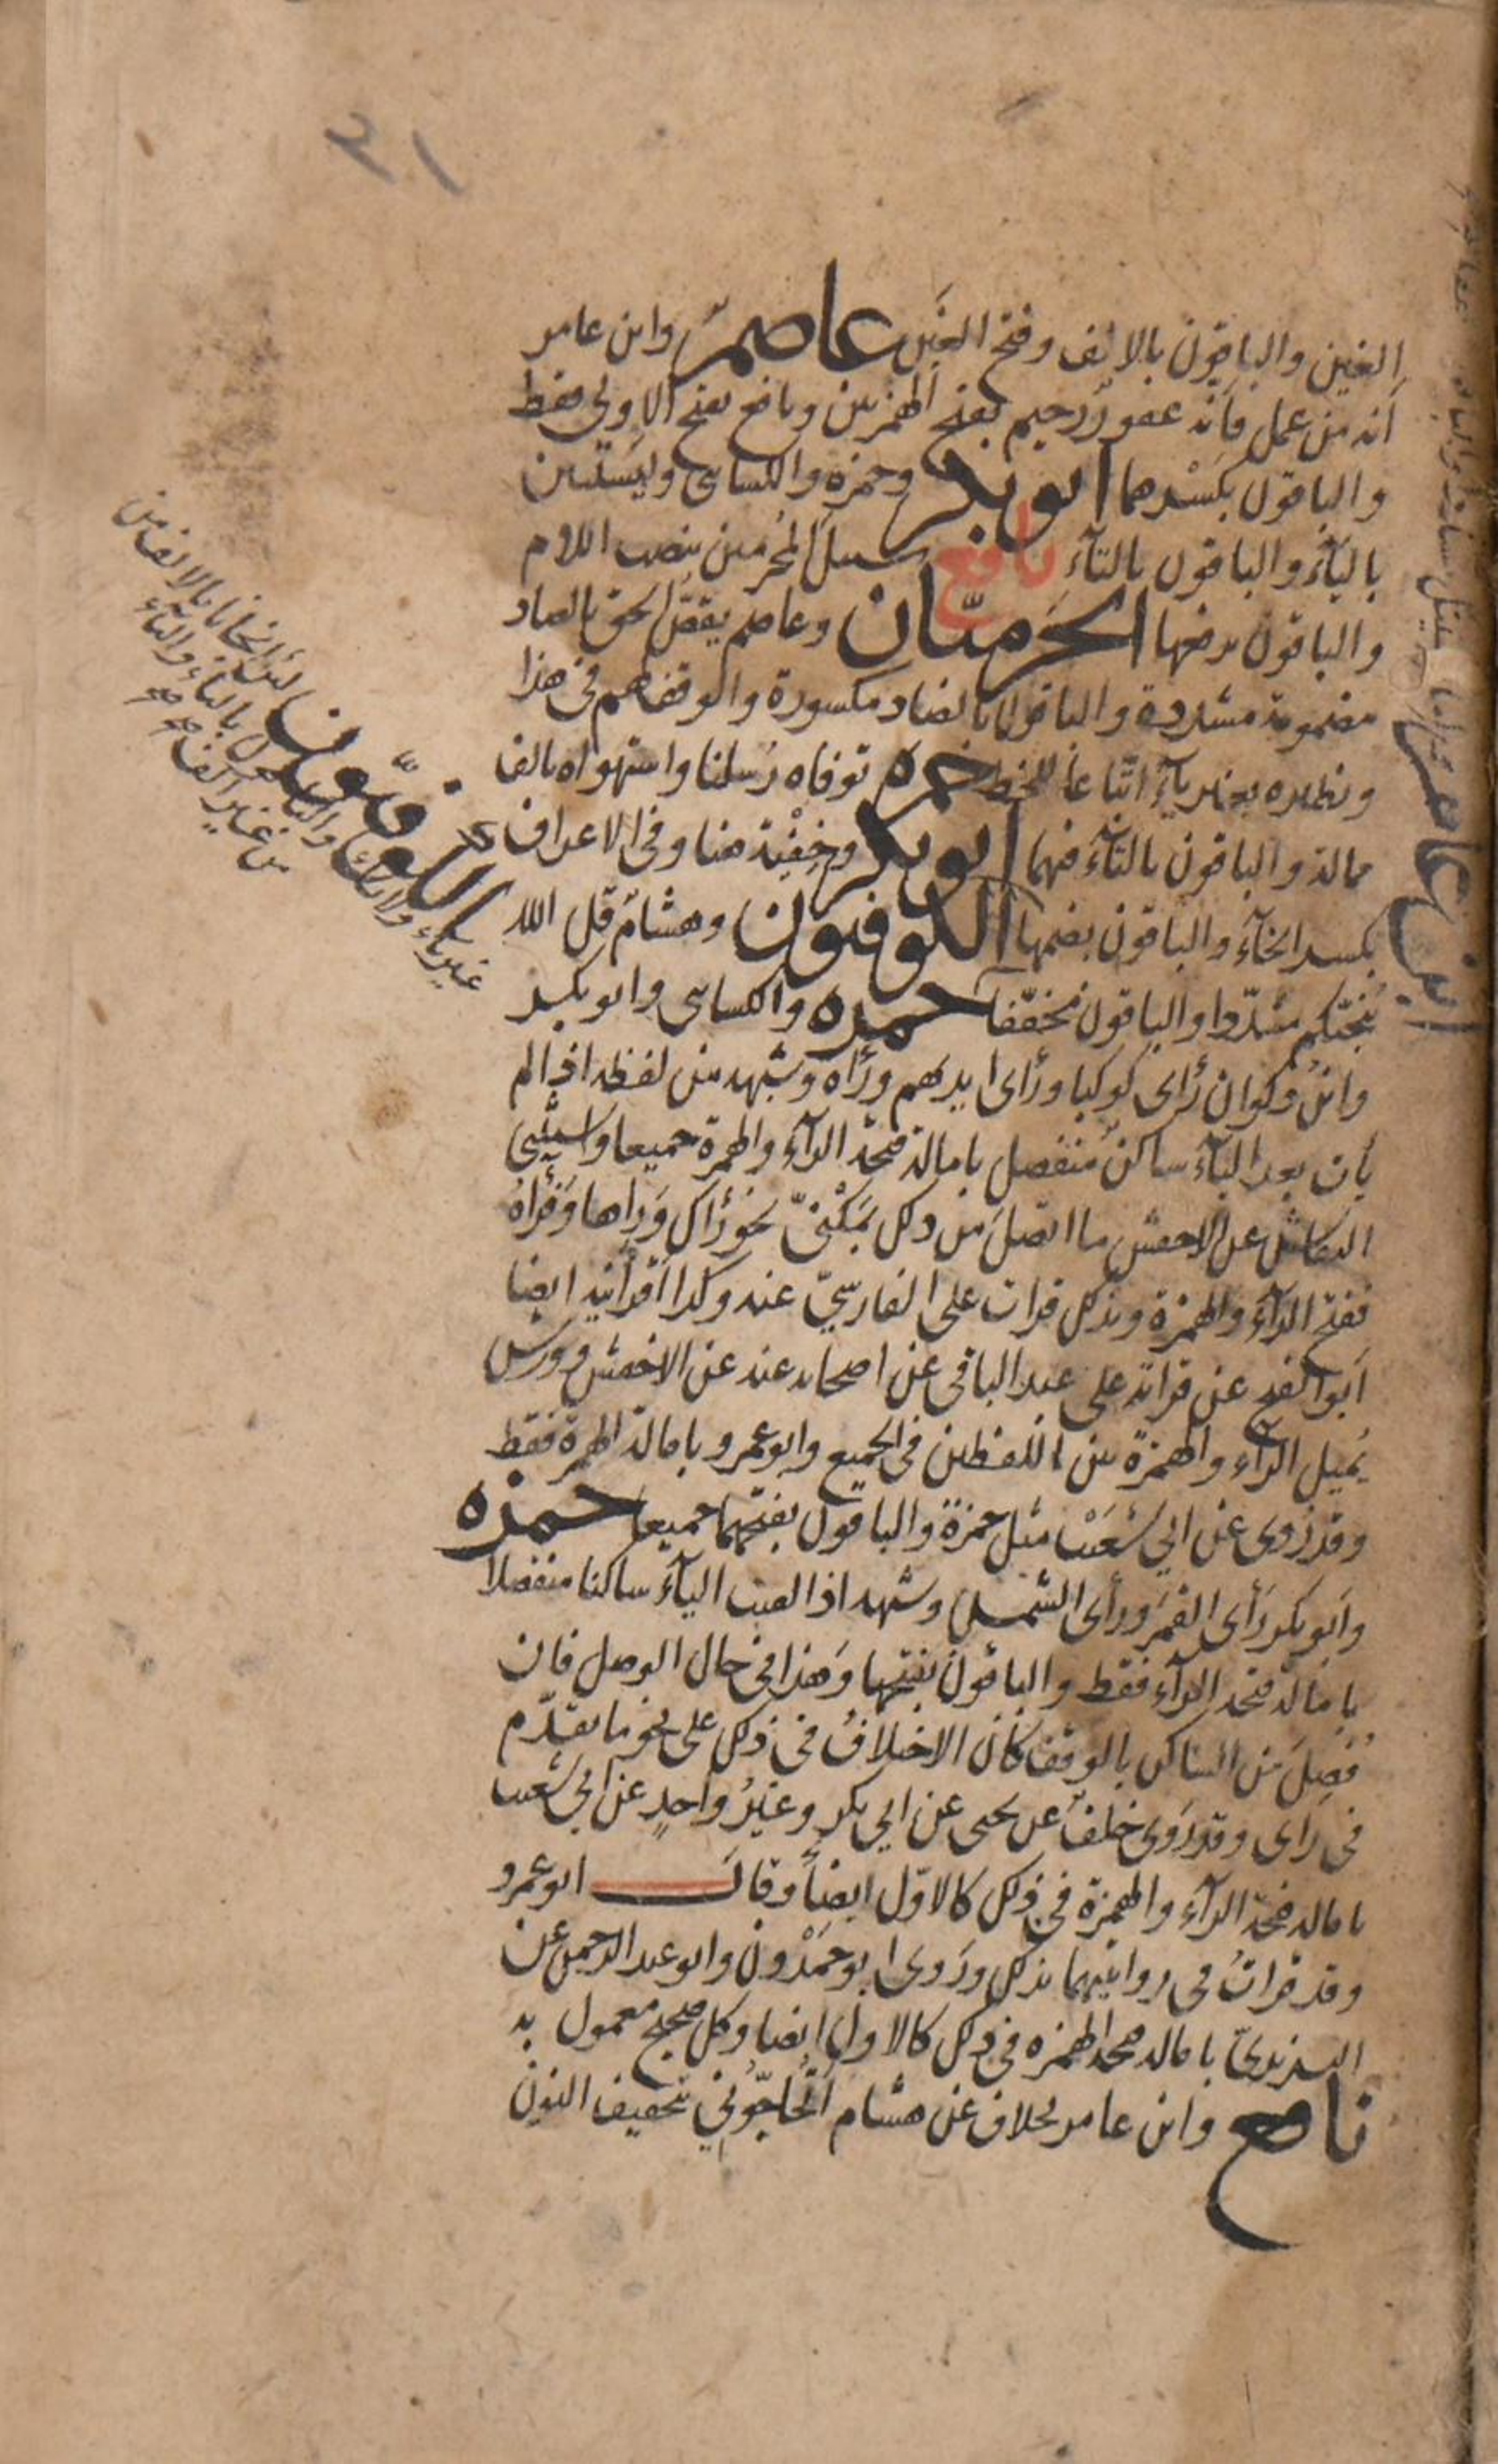 الغين والباقون بالالف وفتح الغين عاصم وابن عامر
أنه من عمل فأنه غفور رحيم بفتح الهمزتين ونافع بفتح الاولى فقط
والباقون بكسرهما ابو بكر وحمزة والكسائى وليستبين
بالياء والباقون بالتاء نافع سبيل المجرمين بنصب اللام
والباقون برفعها الحرميّان وعاصم يقصّ الحق بالصاد
مضمومة مشددة والباقون بالضاد مكسورة والوقف لهم فى هذا
ونظيره بغير ياء اتباعا للخط حمزة توفاه رسلنا واستهواه بالف
ممالة والباقون بالتاء فيهما ابو بكر وخِفْية هنا وفى الاعراف
بكسر الخآء والباقون بضمها الكوفيون وهشام قل الله
يُنجّيكم مشدّدا والباقون مخففا حمزه والكسائى وابو بكر
وابن ذكوان رأى كوكبا ورأى ايديهم ورآه وشبهه من لفظه اذا لم
يأت بعد اليآء ساكن منفصل بامالة فتحة الرآء والهمزة جميعا واستثنى
النقاش عن الاخفش ما اتصل من ذلك بمكنىّ نحو رآك ورآها ورآه
ففتح الرآء والهمزة وبذلك قرات على الفارسىّ عنه وكذا اقرأنيه ايضا
ابو الفتح عن قراته على عبد الباقى عن اصحابه عنه عن الاخفش وورش
يُميل الرآء والهمزة بين اللفظين فى الجميع وابو عمرو بامالة الهمزة فقط
وقد رُوى عن ابي شعيب مثل حمزة والباقون بفتحهما جميعا حمزه
وابو بكر رَأى القمَرَ ورأى الشمس وشبهه اذا لقيت اليآء ساكنا منفصلا
بامالة فتحة الرآء فقط والباقون بفتحها وهذا فى حال الوصل فان
فُصِلَ من الساكن بالوقف كان الاختلاف فى ذلك على نحو ما تقدّم
فى رأى وقد روى خلف عن يحيى عن ابي بكر وغيرُ واحدٍ عن ابي شعيب
بامالة فتحة الرآء والهمزة فى ذلك كالاوّل ايضا وقال ابو عمرو
وقد قراتُ فى روايتيهما بذلك ورَوى ابو حَمْدون وابو عبد الرحمن عن
اليزيدىّ بامالة فتحة الهمزه فى ذلك كالاول ايضا وكل صحيح معمول به
نافع وابن عامر بخلاف عن هشام أتُحاجّونى بتخفيف النون
ابن عامر
الكوفيّون لئن انجانا بالالف من
غير ياء ولا تاء والباقون بالياء والتاء
من غير الف صح صح
٣١